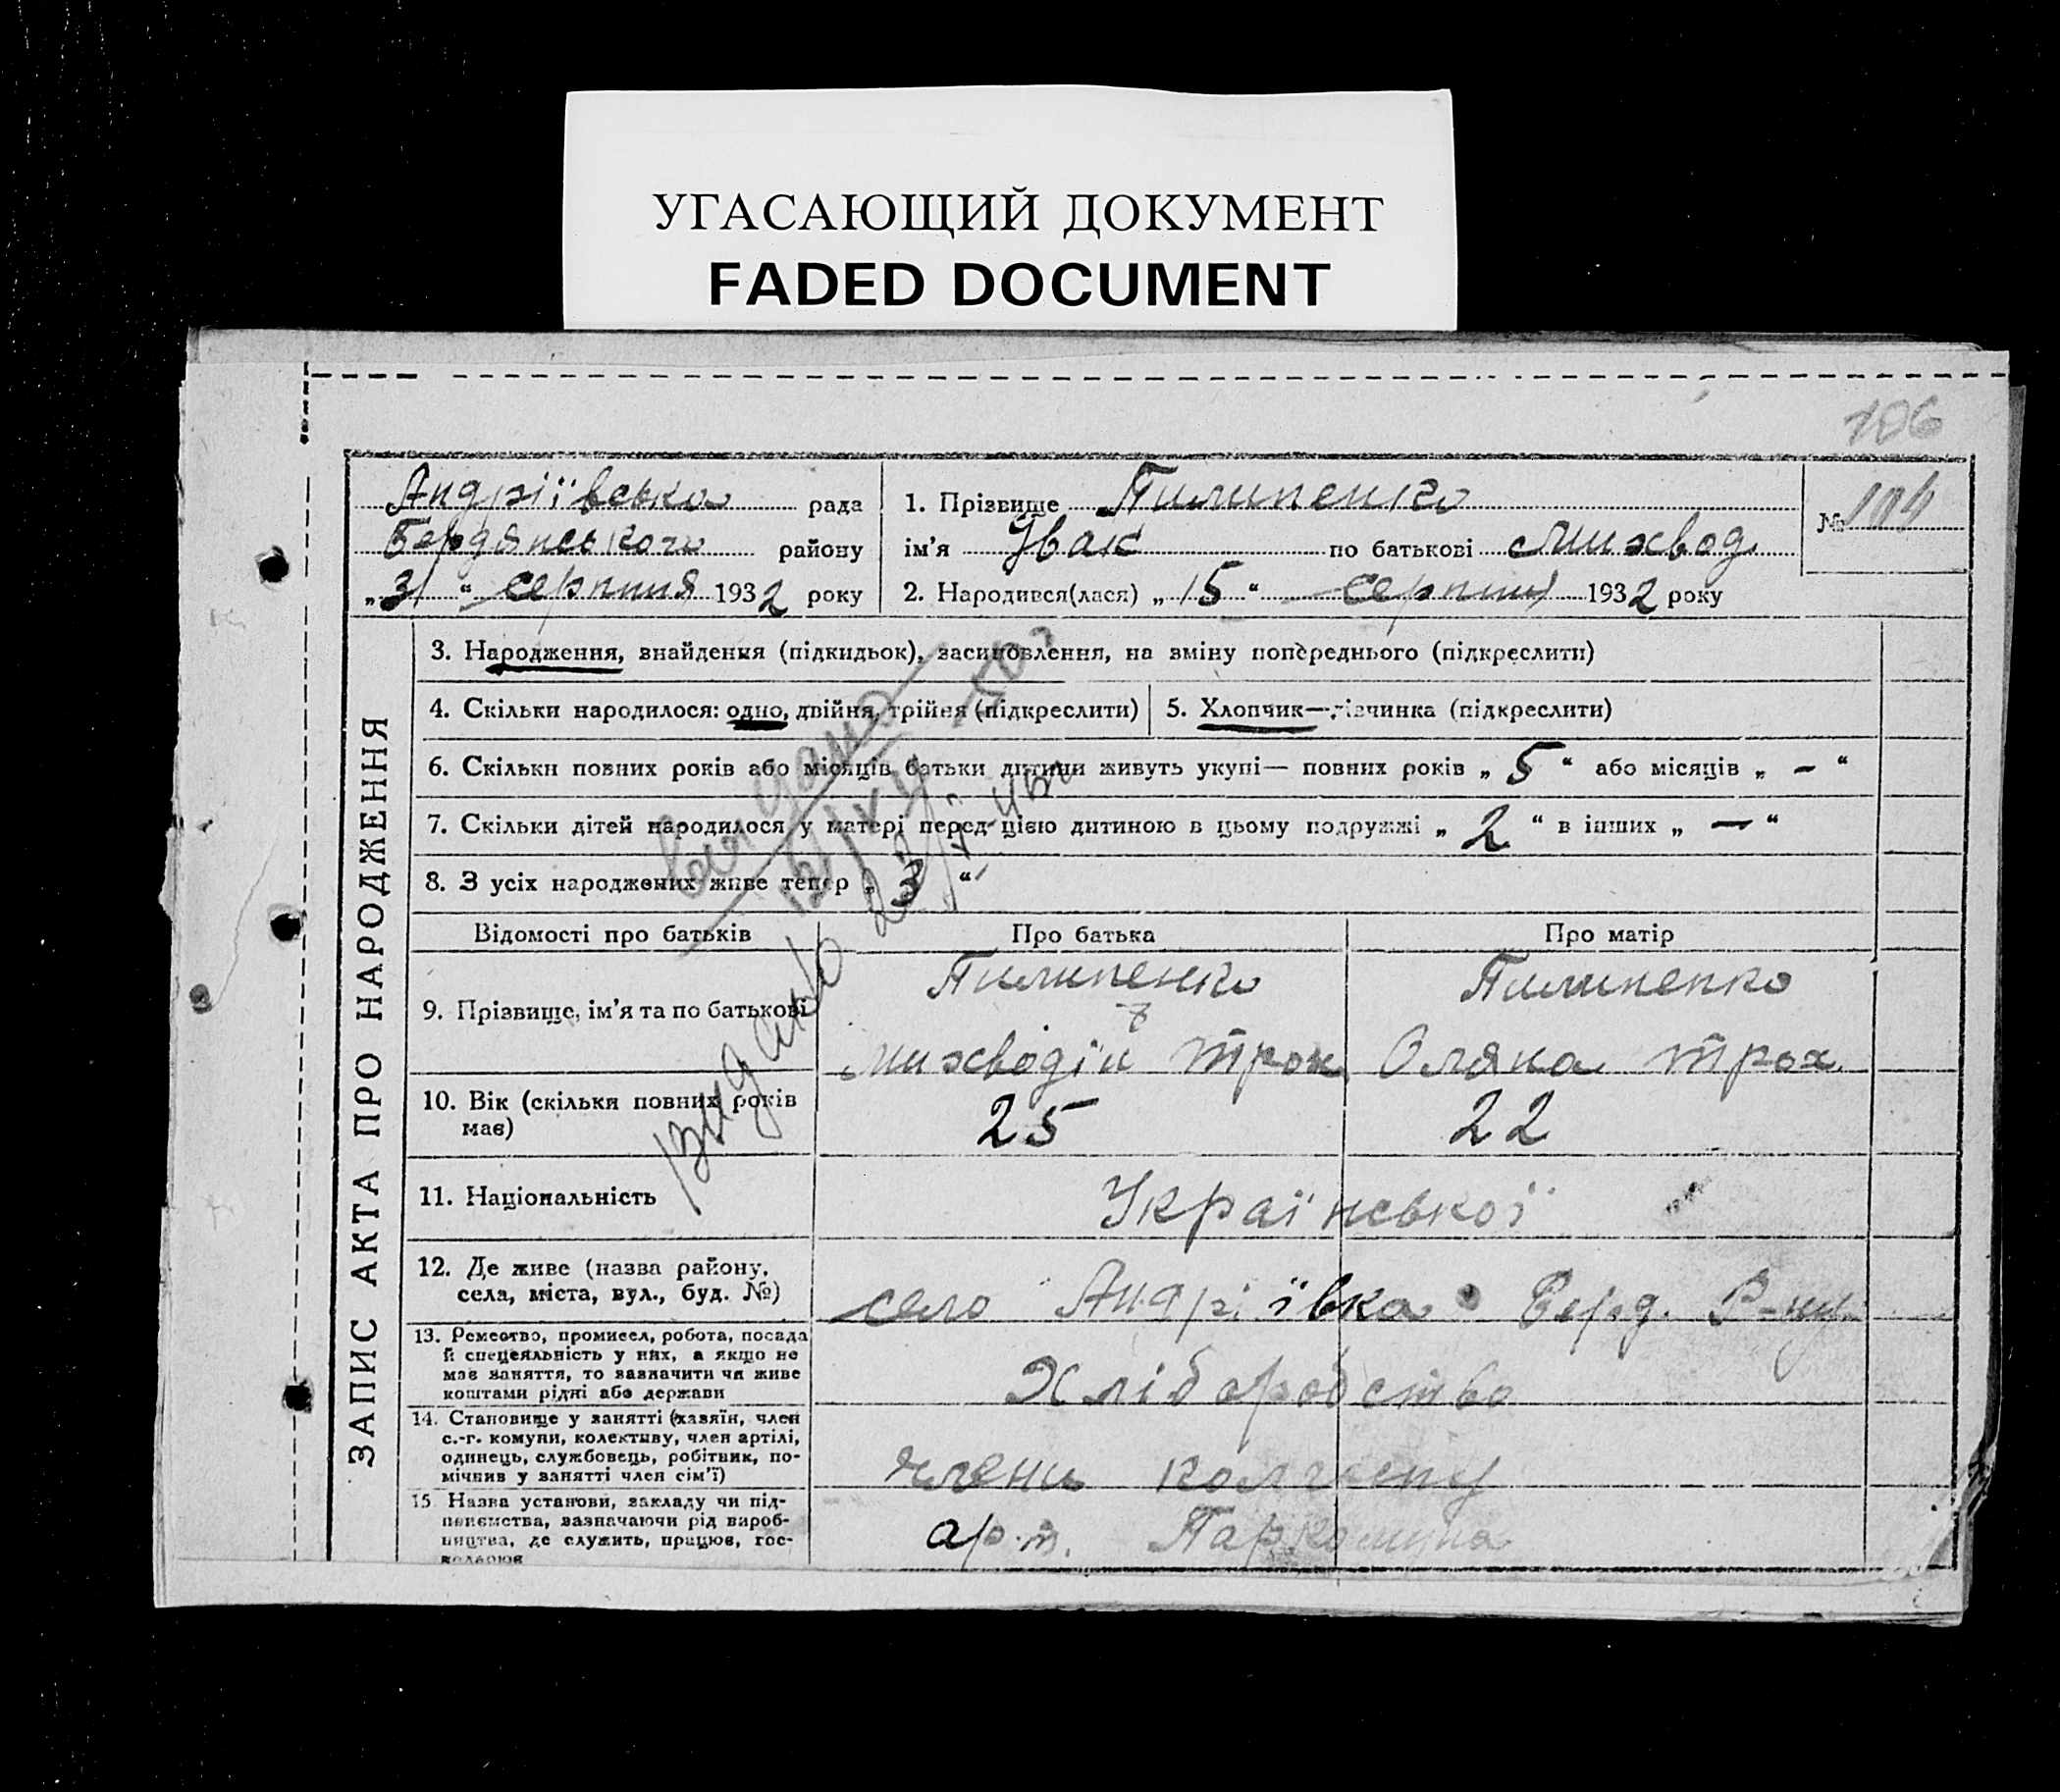 УГАСАЮЩИЙ ДОКУМЕНТ
FADED DOCUMENT
106
Андріївська рада
Бердянського району
„31“ серпния 1932 року
1. Прізвище Пилипенко
ім'я Іван по батькові
2. Народився(лася) „15“ серпния 1932 року
№ 104
ЗАПИС АКТА ПРО НАРОДЖЕННЯ
3. Народження, знайдення (підкидьок), засиновлення, на зміну попереднього (підкреслити)
4. Скільки народилося: одно, двійня, трійня (підкреслити)
5. Хлопчик—дівчинка (підкреслити)
6. Скільки повних років або місяців батьки дитини живуть укупі— повних років „5“ або місяців „–“
7. Скільки дітей народилося у матері перед цією дитиною в цьому подружжі „2“ в інших „—“
8. З усіх народжених живе тепер „3“
Видано
Відомості про батьків
Про батька
Про матір
9. Прізвище, ім'я та по батькові
Пилипенко
Трох
Пилипенко
Оляна Трох.
10. Вік (скільки повних років має)
25
22
11. Національність
Української
12. Де живе (назва району, села, міста, вул., буд. №)
село Андріївка Берд. Р-ну
13. Ремество, промисел, робота, посада й спецеяльність у них, а якщо не має заняття, то зазначити чи живе коштами рідні або держави
Хліборобство
14. Становище у занятті (хазяїн, член с.-г. комуни, колективу, член артілі, одинець, службовець, робітник, помічнив у занятті член сім'ї)
члени колгоспу
15. Назва установи, закладу чи підприємства, зазначаючи рід виробництва, де служить, працює, господарює
арт.